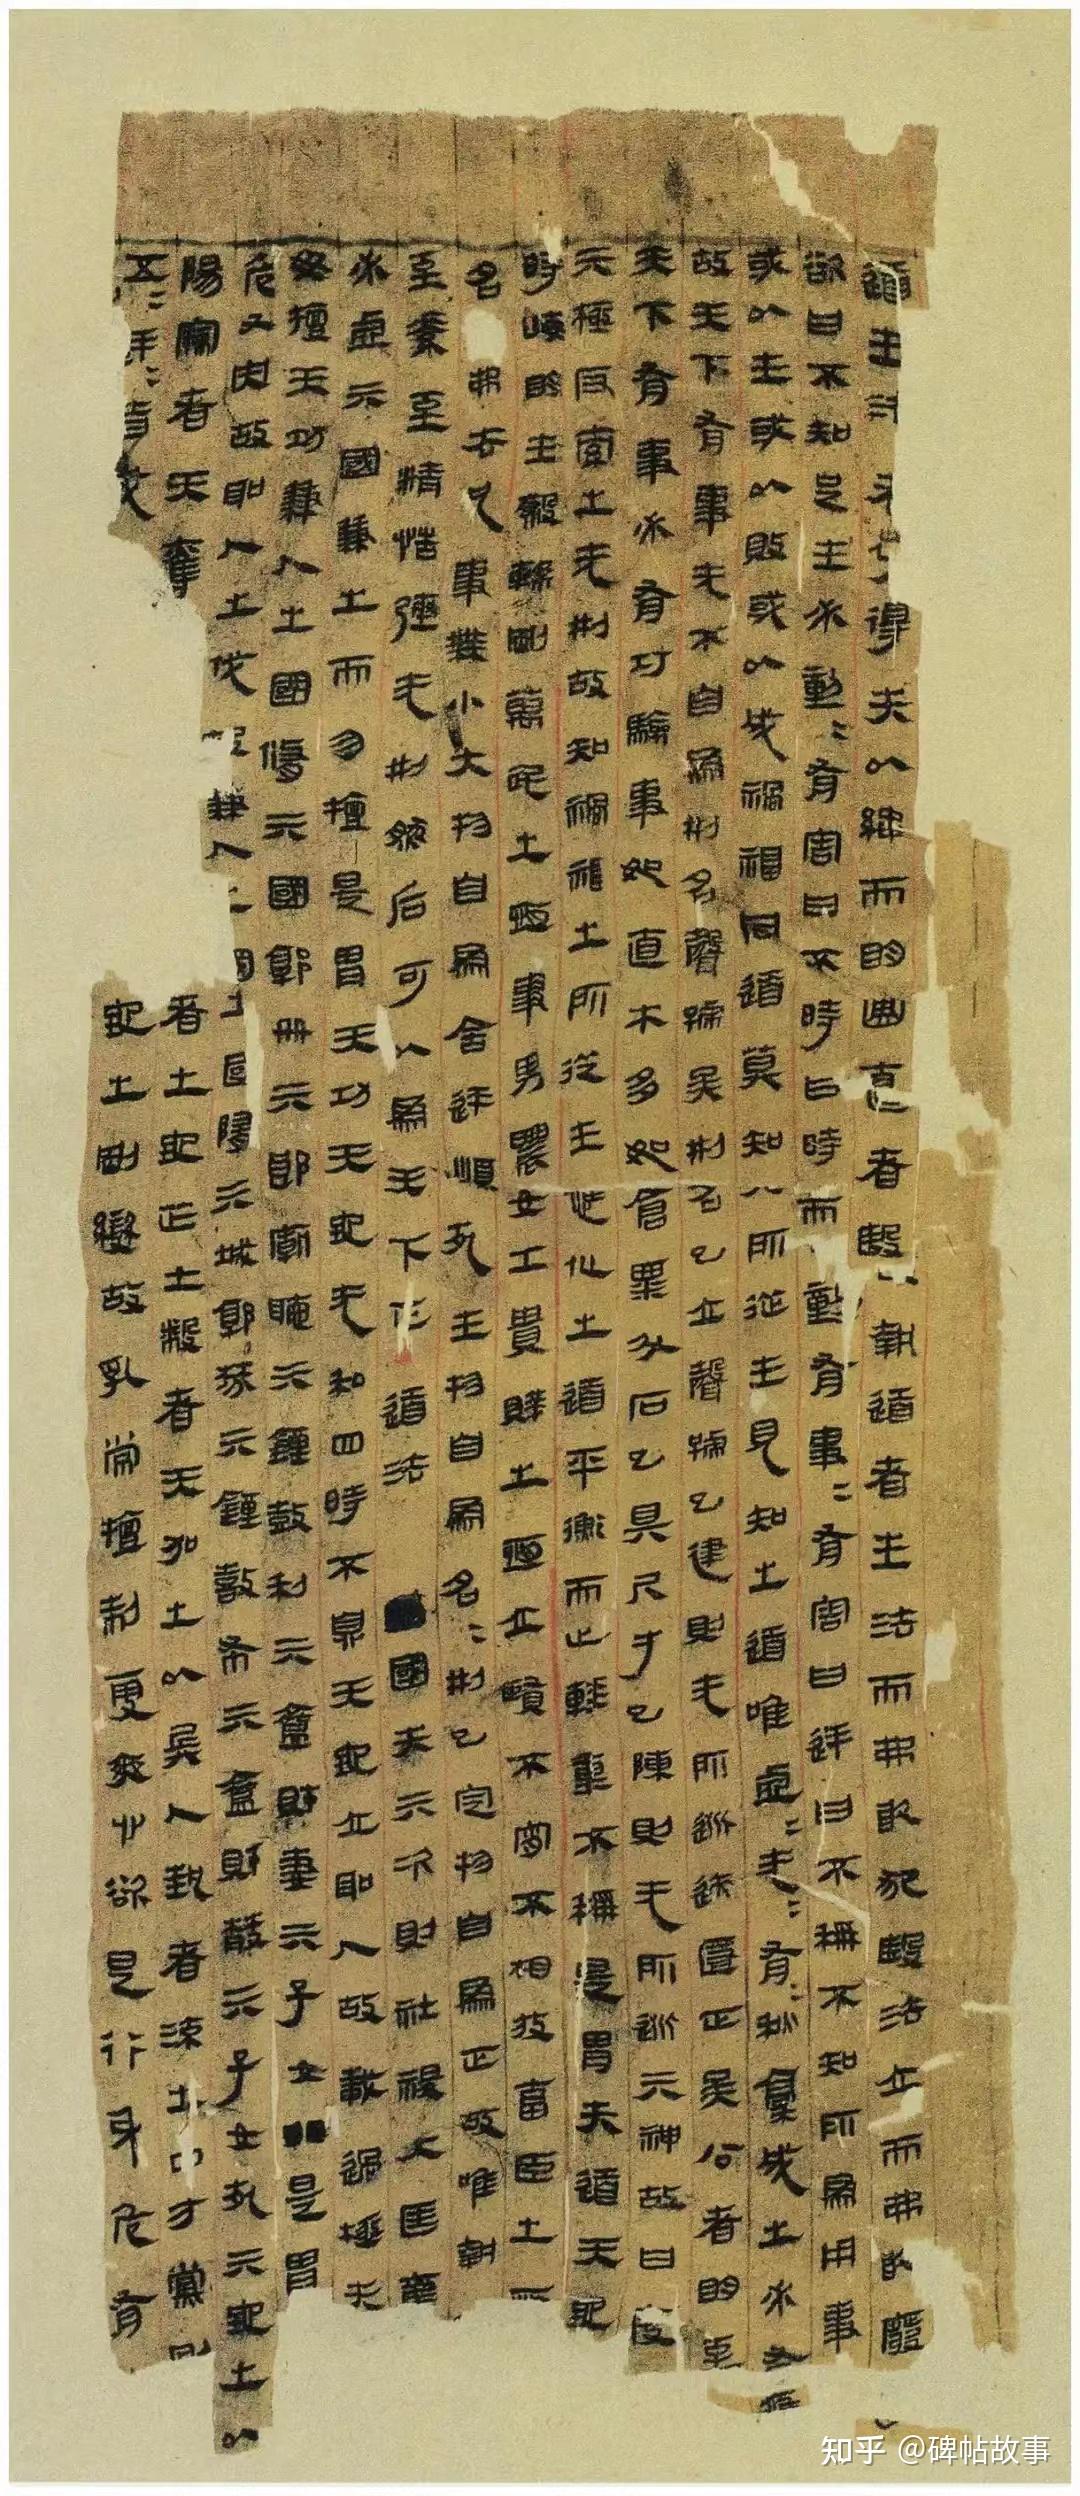 道生法 得失以繩而明曲直者殹 執道者生法而弗敢犯殹法立而弗敢廢
欲曰不知足生必動=有害曰不時曰時而動有事=有害曰逆曰不稱不知所為用事
或以生或以敗或以成禍福同道莫知其所從生見知之道唯虛=无=有=秋稾成之必有
故天下有事无不自為刑名聲號矣刑名已立聲號已建則无所逃迹匿正矣公者明至
天下有事必有巧驗事如直木多如倉粟斗石已具尺寸已陳則无所逃亓神故曰度
亓極反索之无刑故知禍福之所從生應化之道平衡而止輕重不稱是胃失道天地
時晦明生殺輮剛萬民之恒事男農女工貴賤之恒立賢不宵不相放畜臣之
名 弗去凡事無小大物自為舍逆順死生物自為名=刑已定物自為正故唯執
至素至精浩彌无刑然后可以為天下正 道法 國失亓次則社稷大匡奪
必虛亓國兼之而勿擅是胃天功天地无私四時不息天地立聖人故載過極失
必擅天功兼人之國脩亓國郭處亓郎廟聽亓鐘鼓利亓齍財妻亓子女是胃
危又央故聖人之伐殹兼人之國隋亓城郭棼亓鐘鼓布亓齍財散亓子女列亓地土以
陽竊者天奪 者土地芒土敝者天加之以兵人埶者流之四方黨別
五=逆=皆成 地之剛變故亂常擅制更爽心欲是行身危有
知乎 @碑帖故事